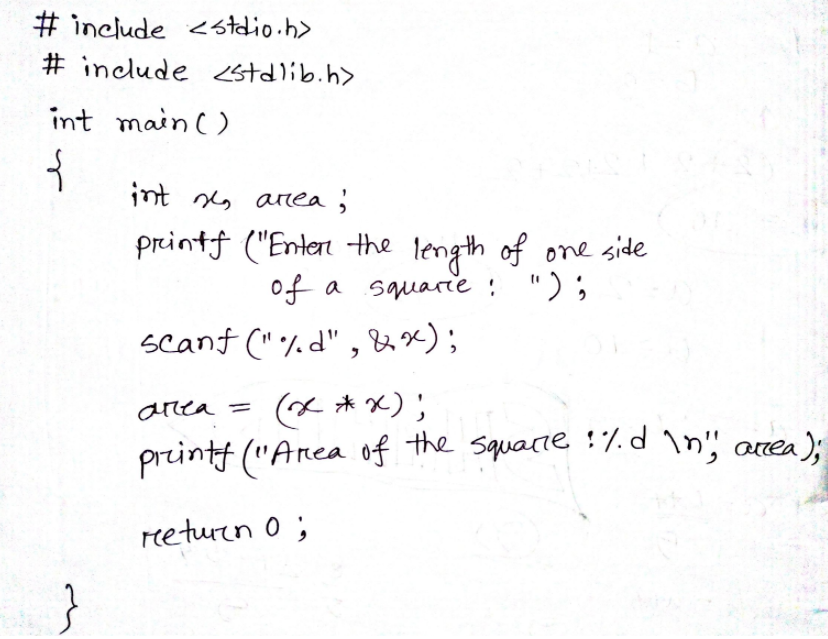 # include <stdio.h>
# include <stdlib.h>
int main()
{
int x, area;
printf ("Enter the length of one side
of a square : ");
scanf ("%d", &x);
area = (x * x);
printf ("Area of the square : %d \n", area);
return 0;
}